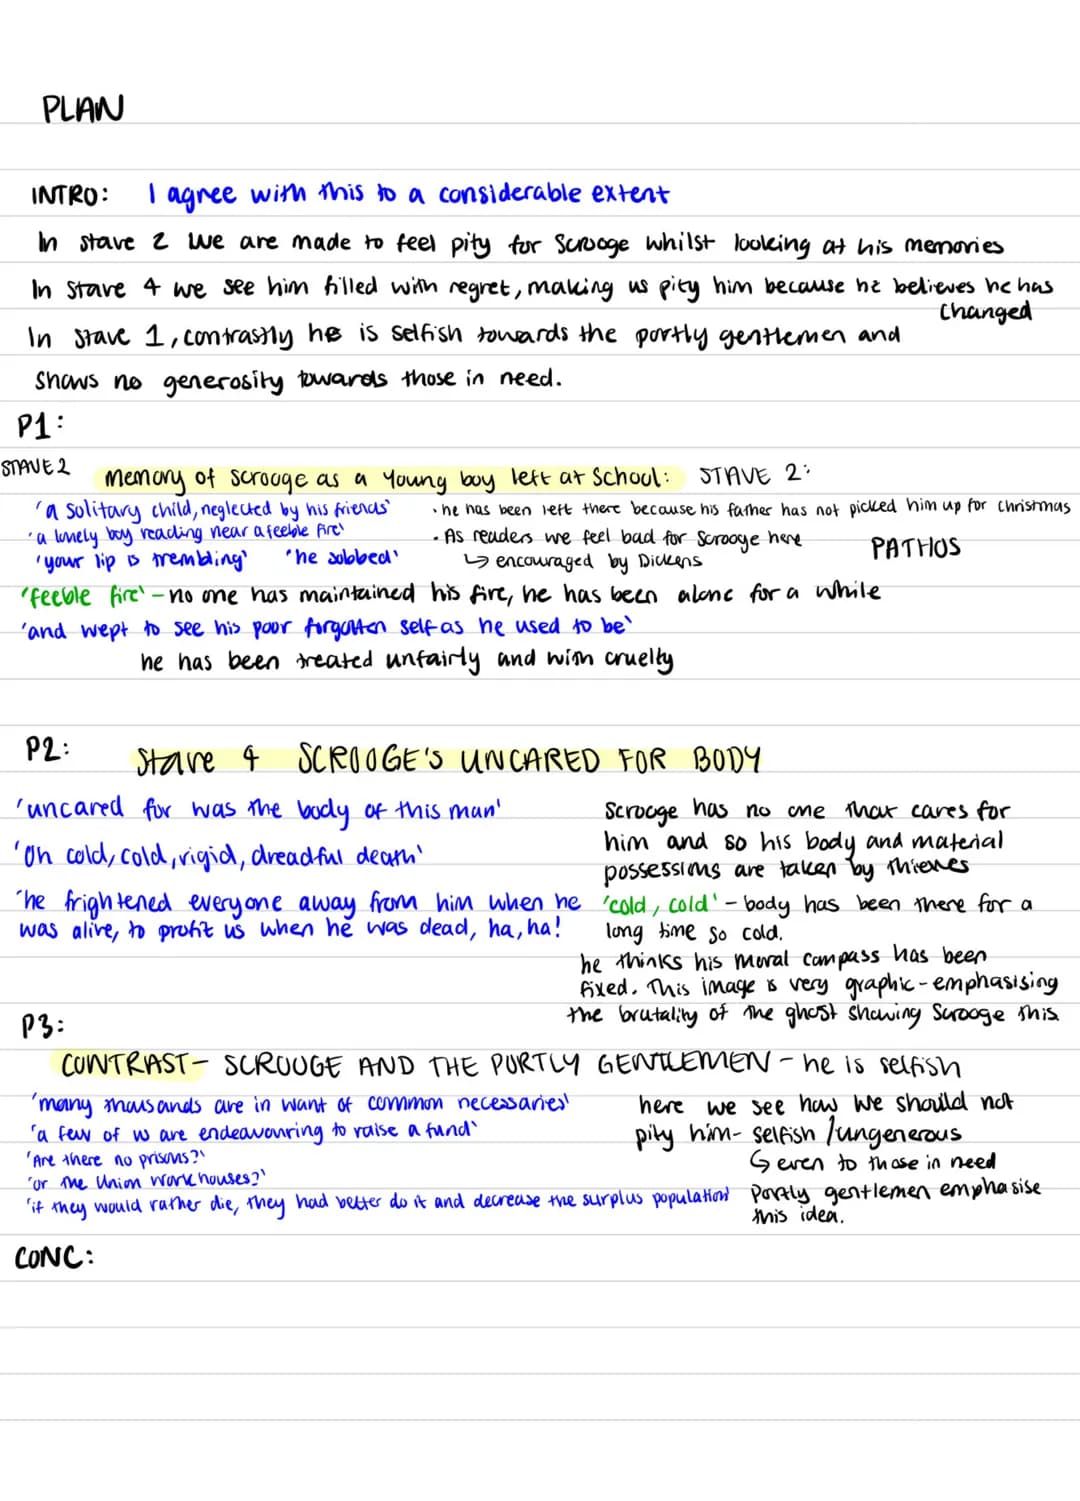 PLAN
INTRO: I agree with this to a considerable extent
In stave 2 we are made to feel pity for Scrooge whilst looking at his memories
In Stave 4 we see him filled with regret, making us pity him because he believes he has
changed
In Stave 1, contrastly he is selfish towards the portly gentlemen and
Shows no generosity towards those in need.
P1:
STAVE 2 Memory of Scrooge as a young boy left at School: STAVE 2:
'a solitary child, neglected by his friends' • he has been left there because his father has not picked him up for Christmas
'a lonely boy reading near a feeble fire' • As readers we feel bad for Scrooge here PATHOS
'your lip is trembling' 'he sobbed' ↳ encouraged by Dickens
'feeble fire' - no one has maintained his fire, he has been alone for a while
'and wept to see his poor forgotten self as he used to be'
he has been treated unfairly and with cruelty
P2: Stave 4 SCROOGE'S UNCARED FOR BODY
'uncared for was the body of this man' Scrooge has no one that cares for
him and so his body and material
'Oh cold, cold, rigid, dreadful death' possessions are taken by thieves
'he frightened everyone away from him when he 'cold, cold' - body has been there for a
was alive, to profit us when he was dead, ha, ha! long time so cold.
he thinks his moral compass has been
fixed. This image is very graphic - emphasising
the brutality of the ghost showing Scrooge this
P3:
CONTRAST - SCROOGE AND THE PORTLY GENTLEMEN - he is selfish
'many thousands are in want of common necessaries' here we see how we should not
'a few of us are endeavouring to raise a fund' pity him - selfish / ungenerous
'Are there no prisons?' ↳ even to those in need
'or the Union workhouses?'
'if they would rather die, they had better do it and decrease the surplus population' Portly gentlemen emphasise
this idea.
CONC: